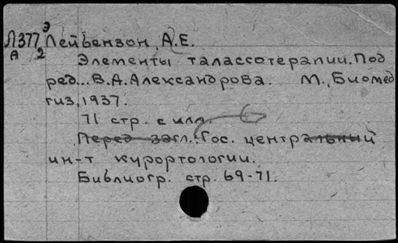 Э
Л377 Лейбензон, А.Е.
А 2 Элементы талассотерапии. Под
ред... В.А. Александрова. М., Биомед
гиз, 1937.
71 стр. с илл.
Перед загл.: Гос. центральный
ин-т курортологии.
Библиогр. стр. 69-71.